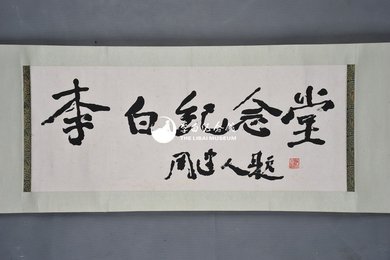 李白纪念堂
周建人题
THE LIBAI MUSEUM